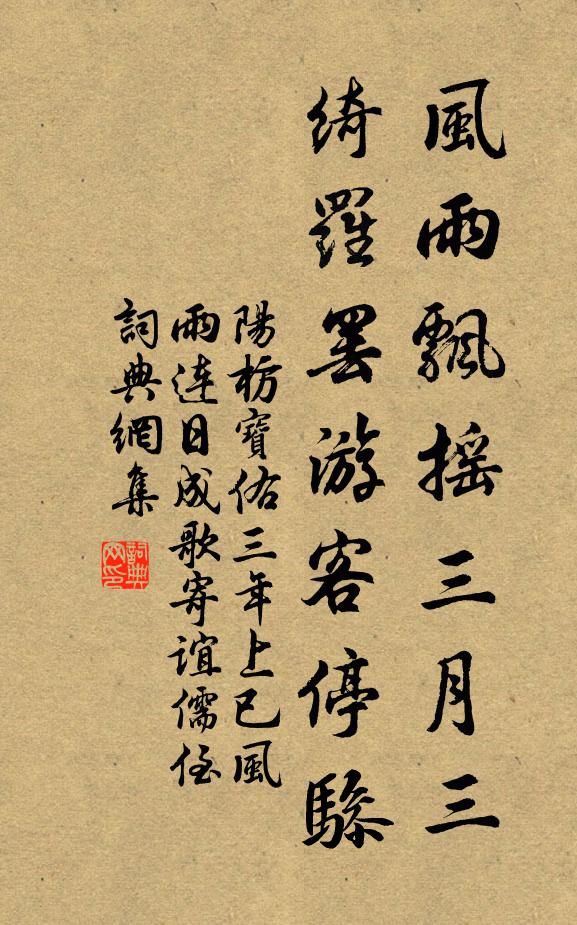 風雨飄搖三月三
綺羅罢游客停驂
陽枋寶佑三年上巳風
雨连日成歌寄谊儒侄
詞典網集
詞典
网印